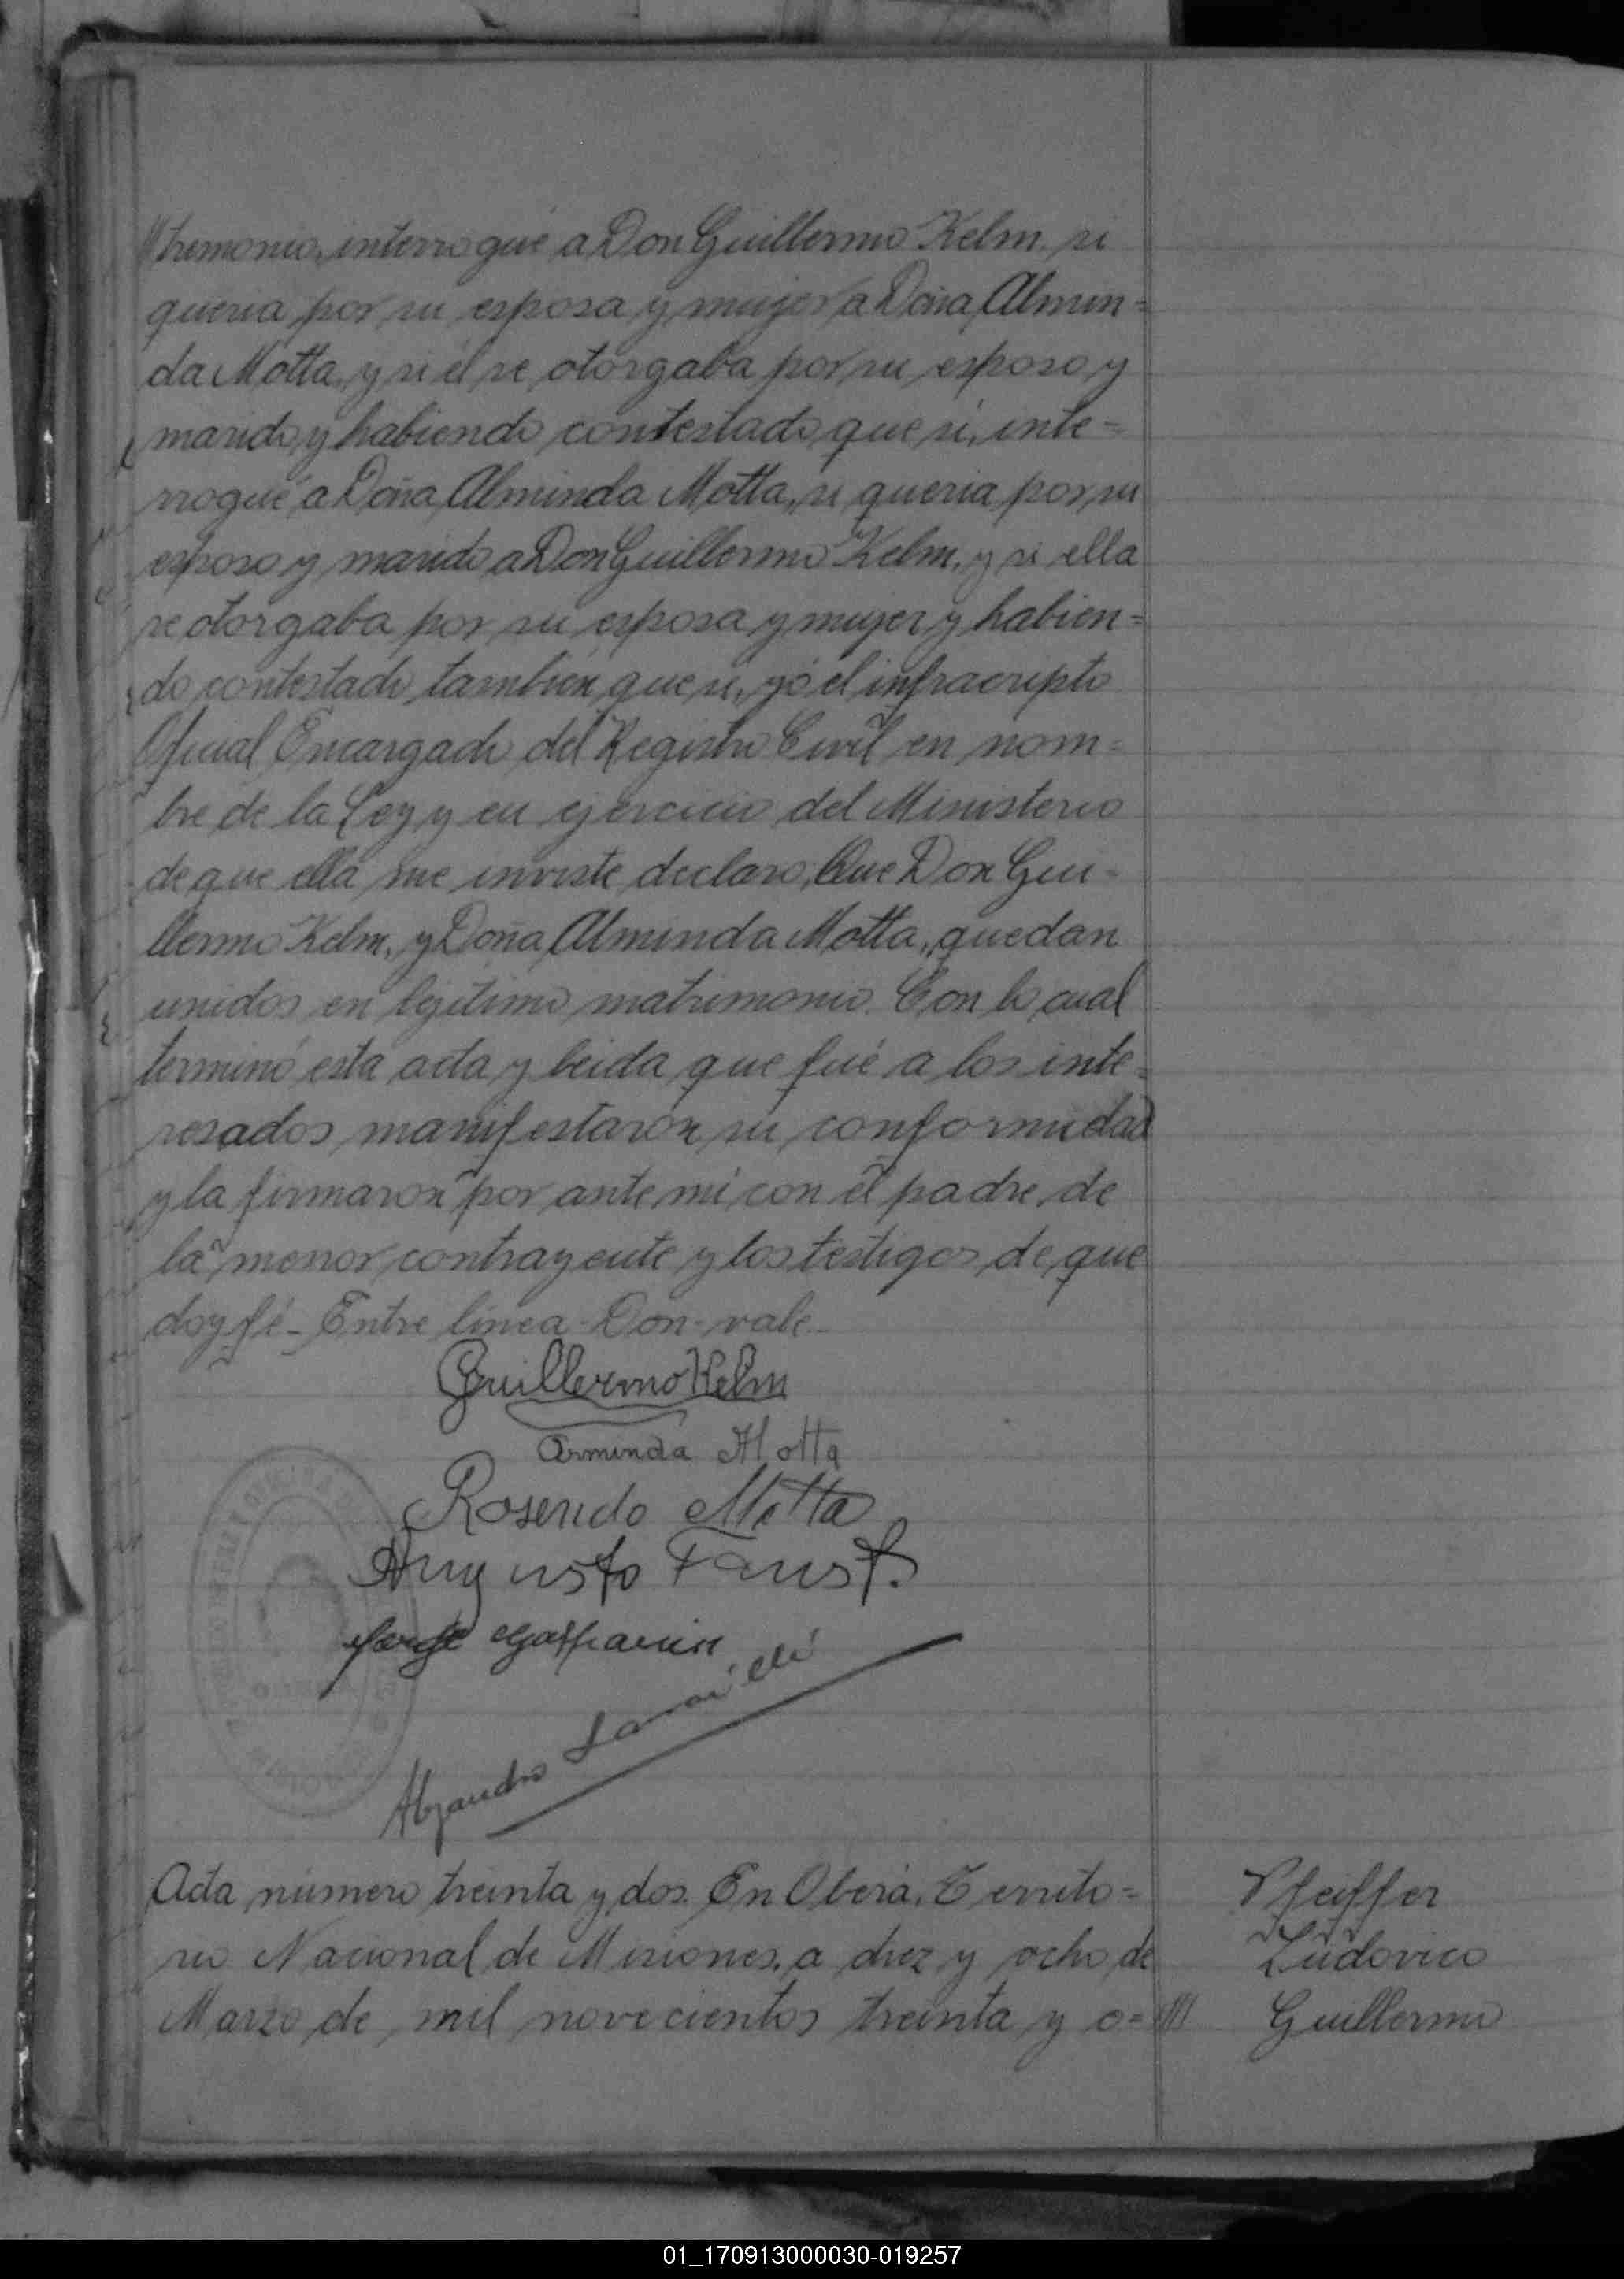 //trimonio, interrogué a Don Guillermo Kelm, si
queria por su esposa y mujer a Doña Almin=
da Motta, y si él se otorgaba por su esposo y
marido, y habiendo contestado que si, inte=
rrogué a Doña Alminda Motta, si queria por su
esposo y marido a Don Guillermo Kelm, y si ella
se otorgaba por su esposa y mujer y habien=
do contestado tambien que si, yó el infrascripto
Oficial Encargado del Registro Civil en nom=
bre de la Ley y en ejercicio del Ministerio
de que ella me inviste, declaro, Que Don Gui=
llermo Kelm, y Doña Alminda Motta, quedan
unidos en lejitimo matrimonio. Con lo cual
terminó esta acta y leida que fué a los inte=
resados manifestaron su conformidad
y la firmaron por ante mi con el padre de
la menor contrayente y los testigos de que
doy fé - Entre linea - Don - vale -
Guillermo Kelm
Arminda Motta
Rosendo Motta
Augusto Faust.
Jorge
Alejandro
Acta número treinta y dos. En Oberá, Territo=
rio Nacional de Misiones, a diez y ocho de
Marzo de mil novecientos treinta y o=///
Pfeiffer
Ludovico
Guillermo
01_170913000030-019257